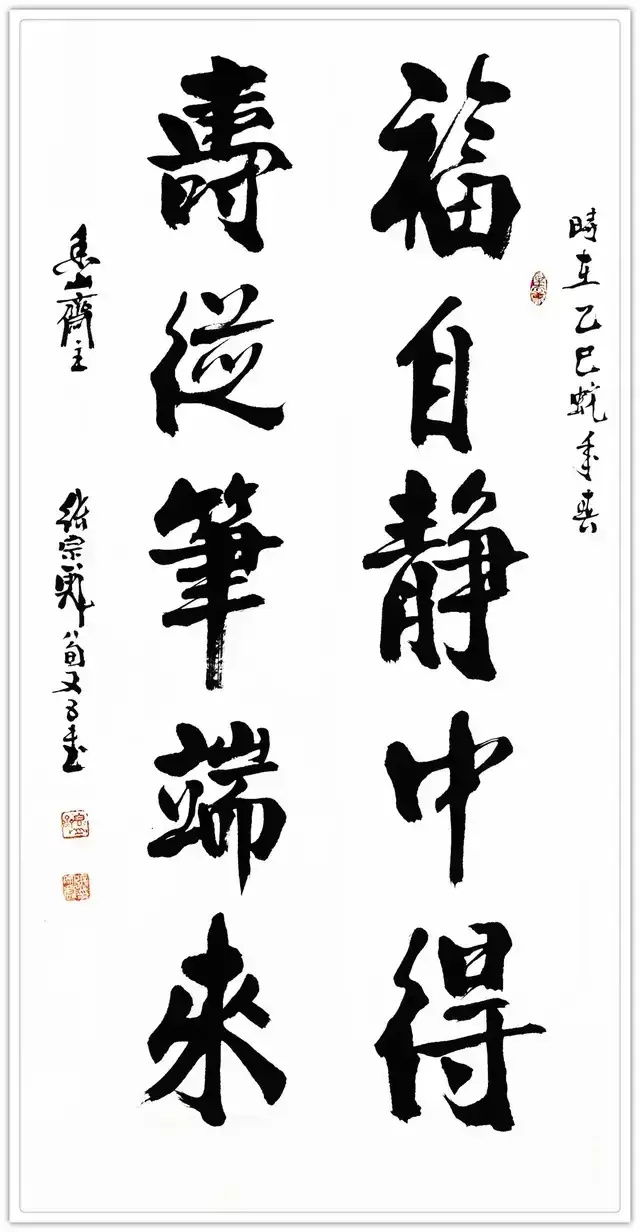 時在乙巳蛇年春
福自静中得
壽從筆端來
香山齋主
張宗彝八旬又五書